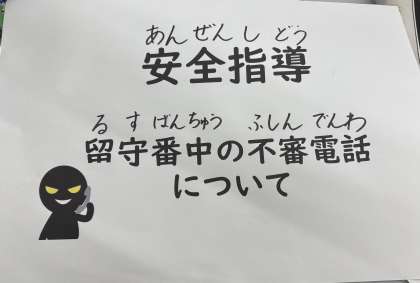 あんぜんしどう
安全指導
るすばんちゅう ふしんでんわ
留守番中の不審電話
について